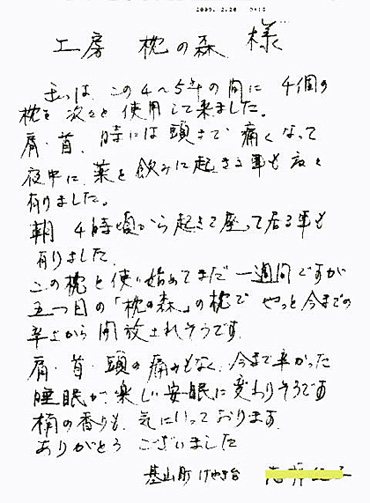 工房 枕の森 様
私は、この4〜5年の間に 4個の
枕を次々と使用して来ました。
肩・首、時には頭まで 痛くなって
夜中に、薬を飲みに起きる事も度々
有りました。
朝 4時頃から起きて座って居る事も
有りました。
この枕を使い始めてまだ一週間ですが
五つ目の「枕の森」の枕で やっと今までの
辛さから開放されそうです。
肩・首・頭の痛みもなく、今まで辛かった
睡眠が、楽しい安眠に変わりそうです
楠の香りも、気にいっております。
ありがとう ございました
基山町 けやき台